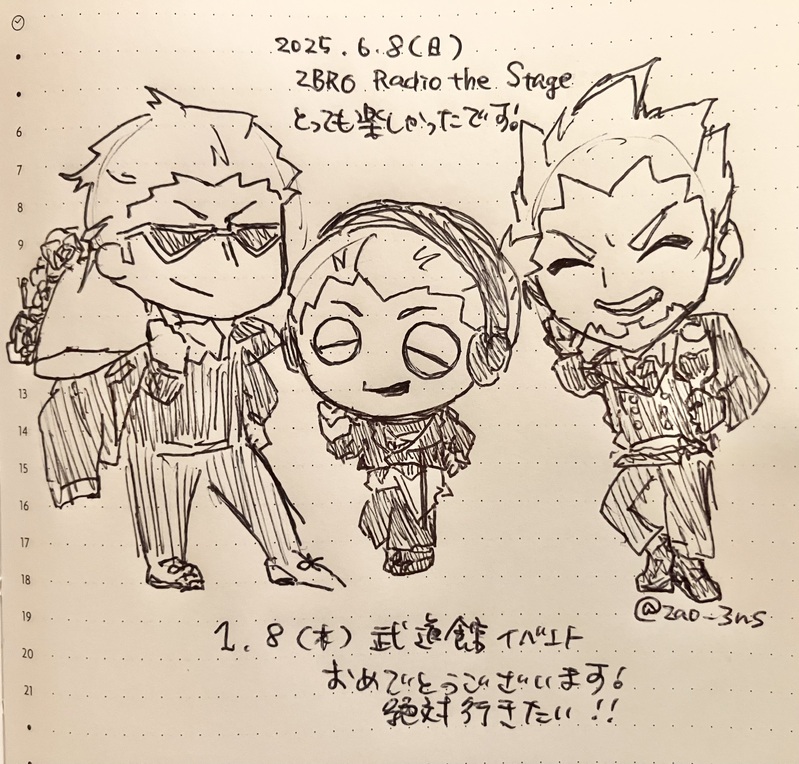 2025.6.8(日)
2BRO Radio the Stage
とっても楽しかったです!
6
7
8
9
13
14
15
16
17
18
19
20
21
@zao_3ns
1.8(木)武道館イベント
おめでとうございます!
絶対行きたい!!